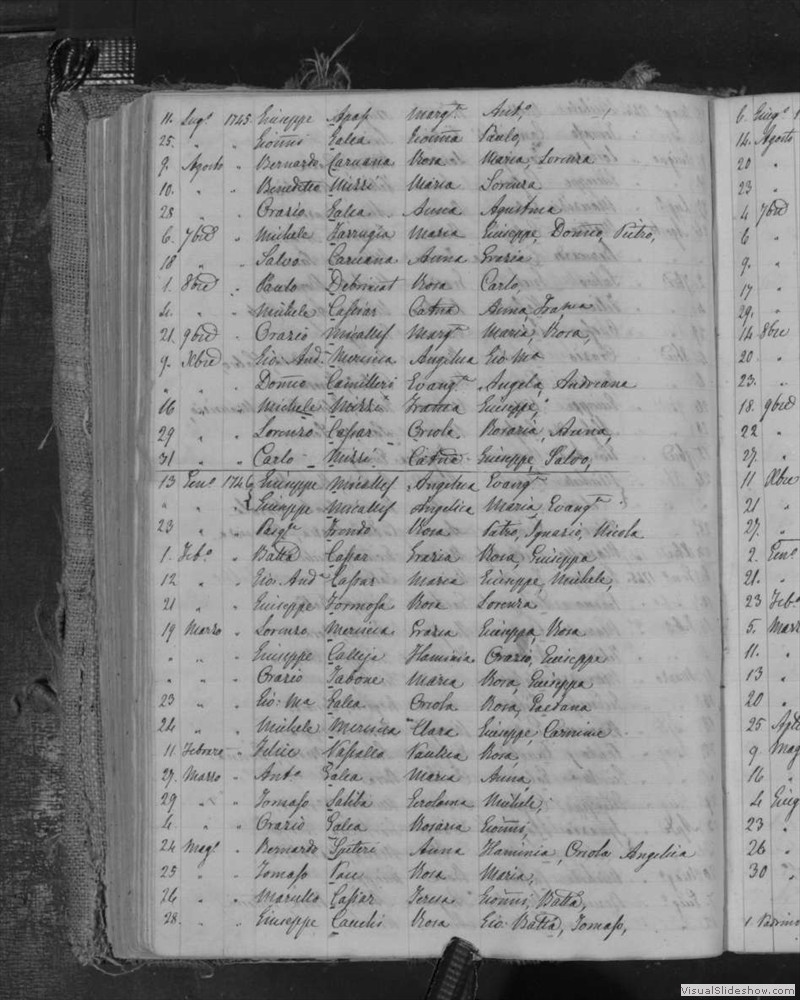 11. Lugo 1745 Giuseppe Apap Margta Anto,
25. " " Gionni Galea Gionna Paulo,
9. Agosto " Bernardo Caruana Rosa Maria, Lorenza
10. " " Benedetto Mizzi Maria Lorenza
28 " " Orazio Galea Anna Agustina
6. 7bre " Michele Farrugia Maria Giuseppe, Domco, Pietro,
18 " " Salvo Caruana Anna Grazia
1. 8bre " Paulo Debrincat Rosa Carlo,
4. " " Michele Cassar Catna Anna,
21. 9bre " Orazio Micallef Margta Maria, Rosa,
9. Xbre " Gio: And Mersieca Angelica Gio Ma
" " " Domco Camilleri Evangta Angela, Andreana
16 " " Michele Mizzi Franca Giuseppe,
29 " " Lorenzo Cassar Oriola Rosaria, Anna,
31 " " Carlo Mizzi Catna Giuseppe, Salvo,
13 Geno 1746 Giuseppe Micallef Angelica Evangta
" " " Giuseppe Micallef Angelica Maria, Evangta
23 " " Pasqle Rosa Pietro, Ignazio, Nicola
1. Febo " Batta Cassar Grazia Rosa, Giuseppa
12 " " Gio: And Cassar Maria Giuseppe, Michele,
21 " " Giuseppe Formosa Rosa Lorenza
19 Marzo " Lorenzo Mersieca Grazia Giuseppa, Rosa
" " " Giuseppe Calleja Flaminia Orazio, Giuseppe
" " " Orazio Tabone Maria Rosa, Giuseppa
23 " " Gio: Ma Galea Oriola Rosa, Gaetana
24 " " Michele Mersieca Clara Giuseppe, Carmine
11 Febraro " Felice Vassallo Paulica Rosa,
27. Marzo " Anto Galea Maria Anna,
29 " " Tomaso Saliba Gerolama Michele,
4. " " Orazio Galea Rosaria Gionni,
24 Mago " Bernardo Spiteri Anna Flaminia, Oriola Angelica
25 " " Tomaso Rosa Maria,
26 " " Marcello Cassar Teresa Gionni, Batta,
28. " " Giuseppe Rosa Gio Batta, Tomaso,
6. Giugo 1
14. Agosto
20 "
23 "
4 7bre
6 "
9. "
17 "
29. "
14 8bre
20 "
23. "
18. 9bre
22 "
27. "
11 Xbre
21 "
27. "
2. Geno
21. "
23 Febo
5. Marz
11. "
13 "
20 "
25 Apl
9 Mag
16 "
4 Giug
23 "
26 "
30 "
1. Padrino
VisualSlideshow.com